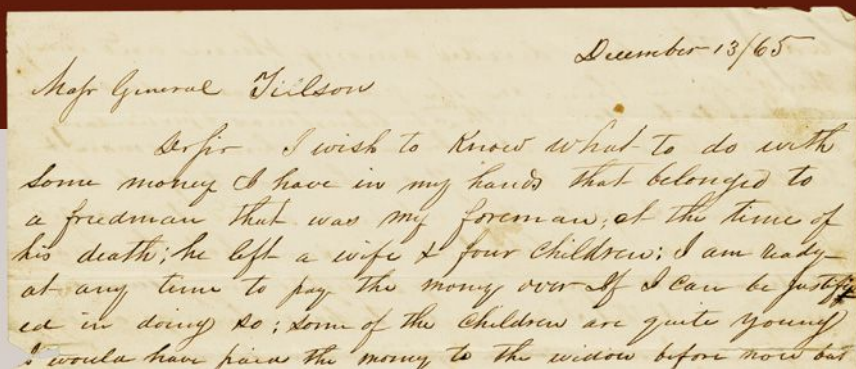 December 13/65
Majr General Tillson
Dr Sir I wish to Know what to do with
some money I have in my hands that belonged to
a freedman that was my foreman; at the time of
his death; he left a wife & four children; I am ready
at any time to pay the money over If I can be justifi
ed in doing so; some of the children are quite young
I would have paid the money to the widow before now but